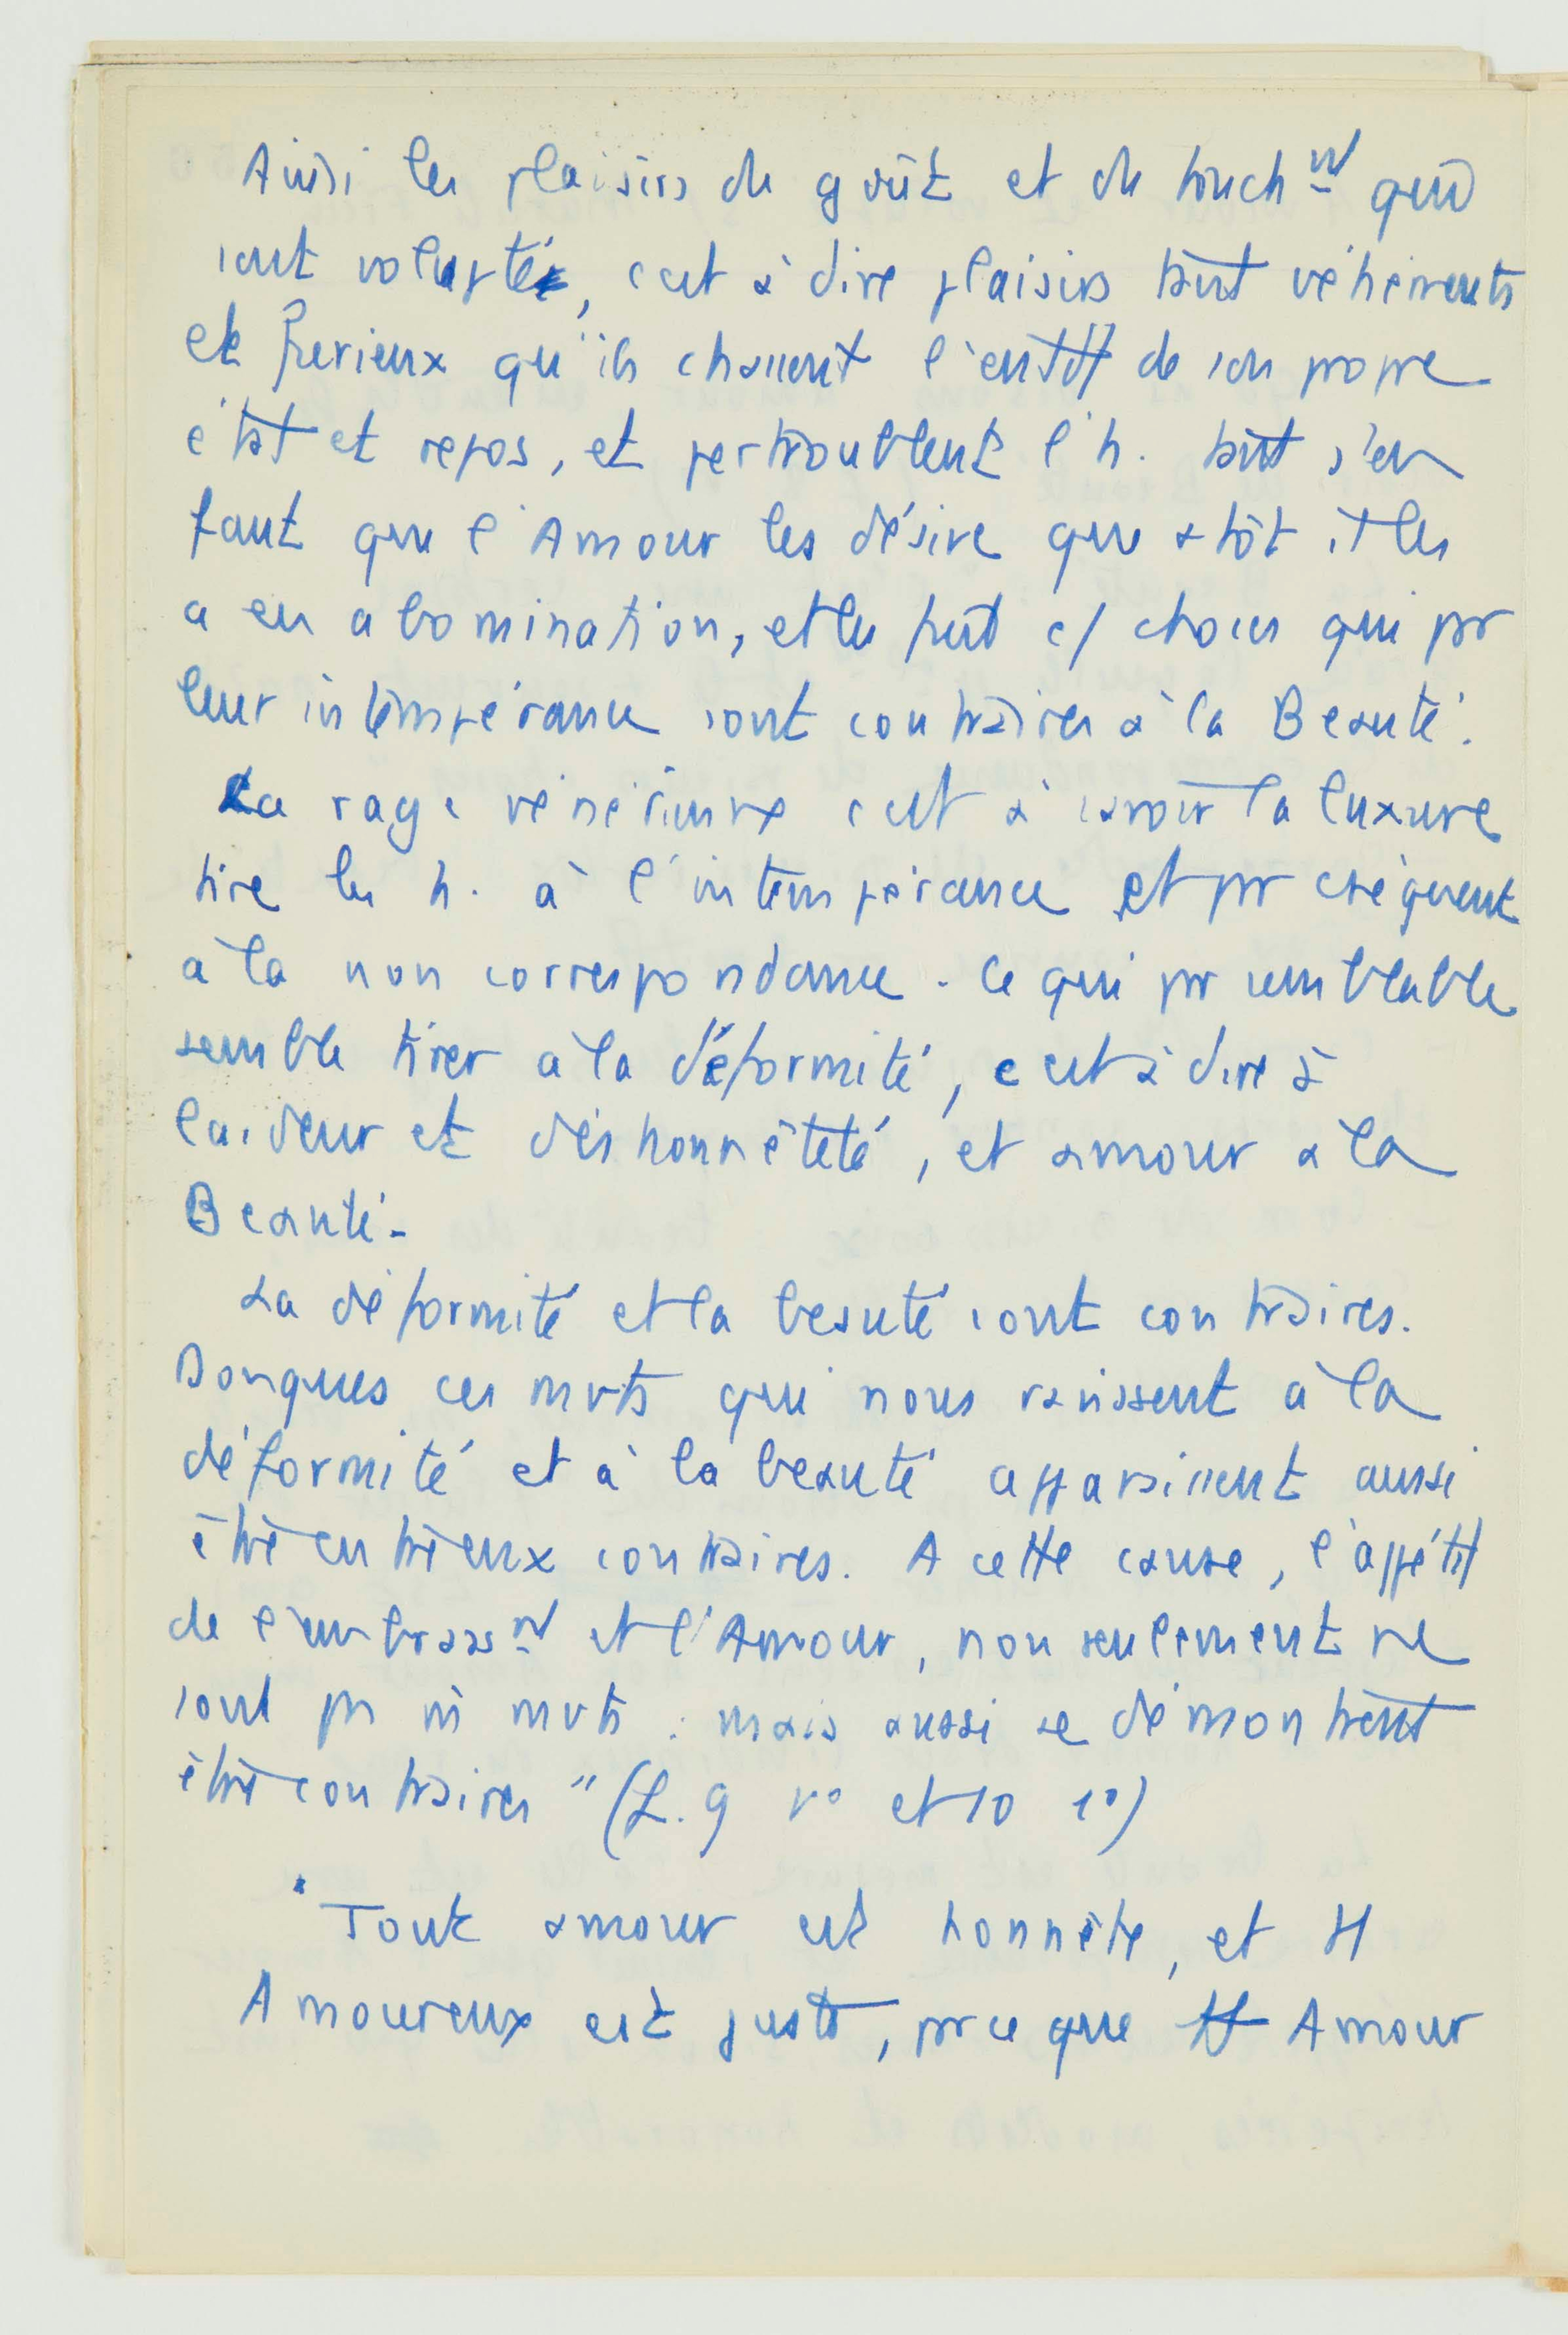 Ainsi les plaisirs du goût et du toucht qui
sont voluptés, c'est à dire plaisirs tant véhéments
et furieux qu'ils chassent l'entdt de son propre
état et repos, et pertroublent l'h. tant s'en
faut que l'Amour les désire que +tôt il les
a en abomination, et les fuit c/ choses qui pr
leur intempérance sont contraires à la Beauté.
La rage vénérienne c'est à savoir la luxure
tire les h. à l'intempérance et pr cséquent
à la non correspondance. Ce qui pr semblable
semble tirer à la déformité, c'est à dire à
laideur et déshonnêteté, et amour à la
Beauté.
La déformité et la beauté sont contraires.
Donques ces mvts qui nous ravissent à la
déformité et à la beauté apparaissent aussi
être entre eux contraires. A cette cause, l'appétit
de l'embrasst et l'Amour, non seulement ne
sont ps m̂ mvts : mais aussi se démontrent
être contraires" (L. 9 v° et 10 r°)
"Tout amour est honnête, et tt
Amoureux est juste, prce que tt Amour